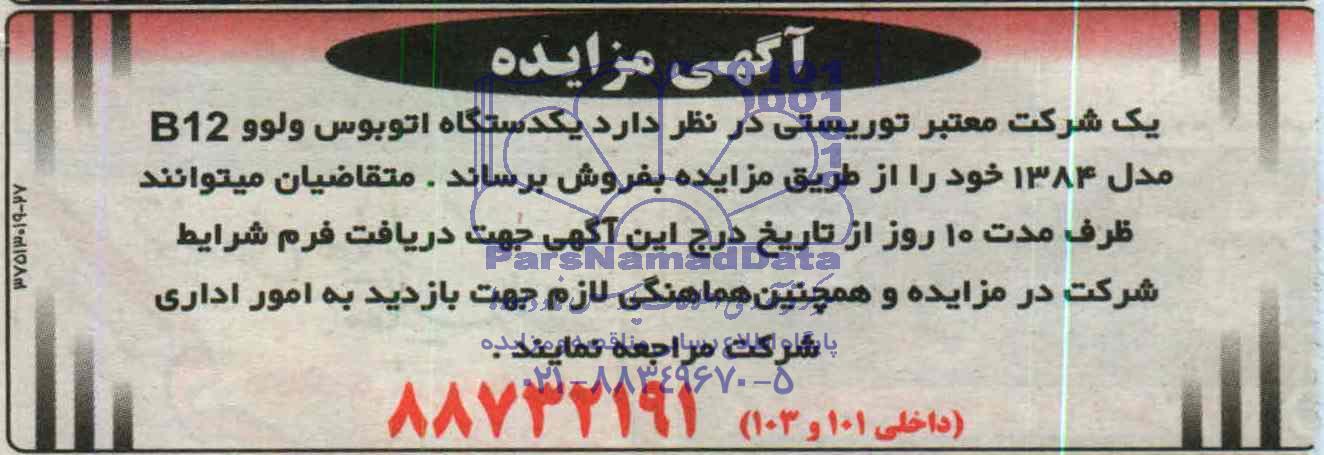 آگهی مزایده
یک شرکت معتبر توریستی در نظر دارد یکدستگاه اتوبوس ولوو B12
مدل ۱۳۸۴ خود را از طریق مزایده بفروش برساند . متقاضیان میتوانند
ظرف مدت ۱۰ روز از تاریخ درج این آگهی جهت دریافت فرم شرایط
ParsNamadData
شرکت در مزایده و همچنین هماهنگی لازم جهت بازدید به امور اداری
شرکت مراجعه نمایند .
پایگاه اطلاع رسانی مناقصه و مزایده
۰۲۱-۸۸۳۴۹۶۷۰-۵
(داخلی ۱۰۱ و ۱۰۳) ۸۸۷۳۲۱۹۱